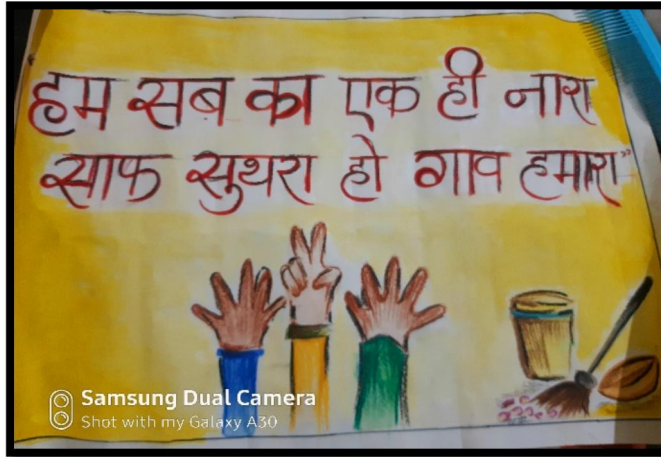 हम सब का एक ही नारा
साफ सुथरा हो गाव हमारा"
Samsung Dual Camera
Shot with my Galaxy A30